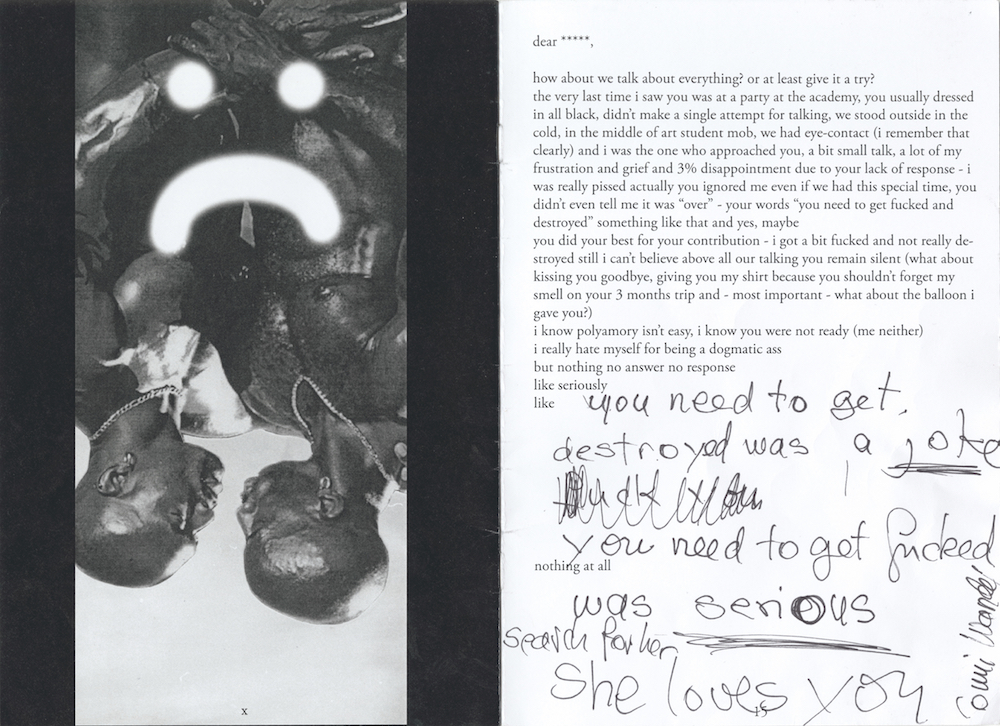 dear *****,
how about we talk about everything? or at least give it a try?
the very last time i saw you was at a party at the academy, you usually dressed
in all black, didn't make a single attempt for talking, we stood outside in the
cold, in the middle of art student mob, we had eye-contact (i remember that
clearly) and i was the one who approached you, a bit small talk, a lot of my
frustration and grief and 3% disappointment due to your lack of response - i
was really pissed actually you ignored me even if we had this special time, you
didn't even tell me it was “over” - your words “you need to get fucked and
destroyed” something like that and yes, maybe
you did your best for your contribution - i got a bit fucked and not really de-
stroyed still i can't believe above all our talking you remain silent (what about
kissing you goodbye, giving you my shirt because you shouldn't forget my
smell on your 3 months trip and - most important - what about the balloon i
gave you?)
i know polyamory isn't easy, i know you were not ready (me neither)
i really hate myself for being a dogmatic ass
but nothing no answer no response
like seriously
like
you need to get
destroyed was a joke
you need to get fucked
nothing at all
was serious
search for her
She loves you
x
15